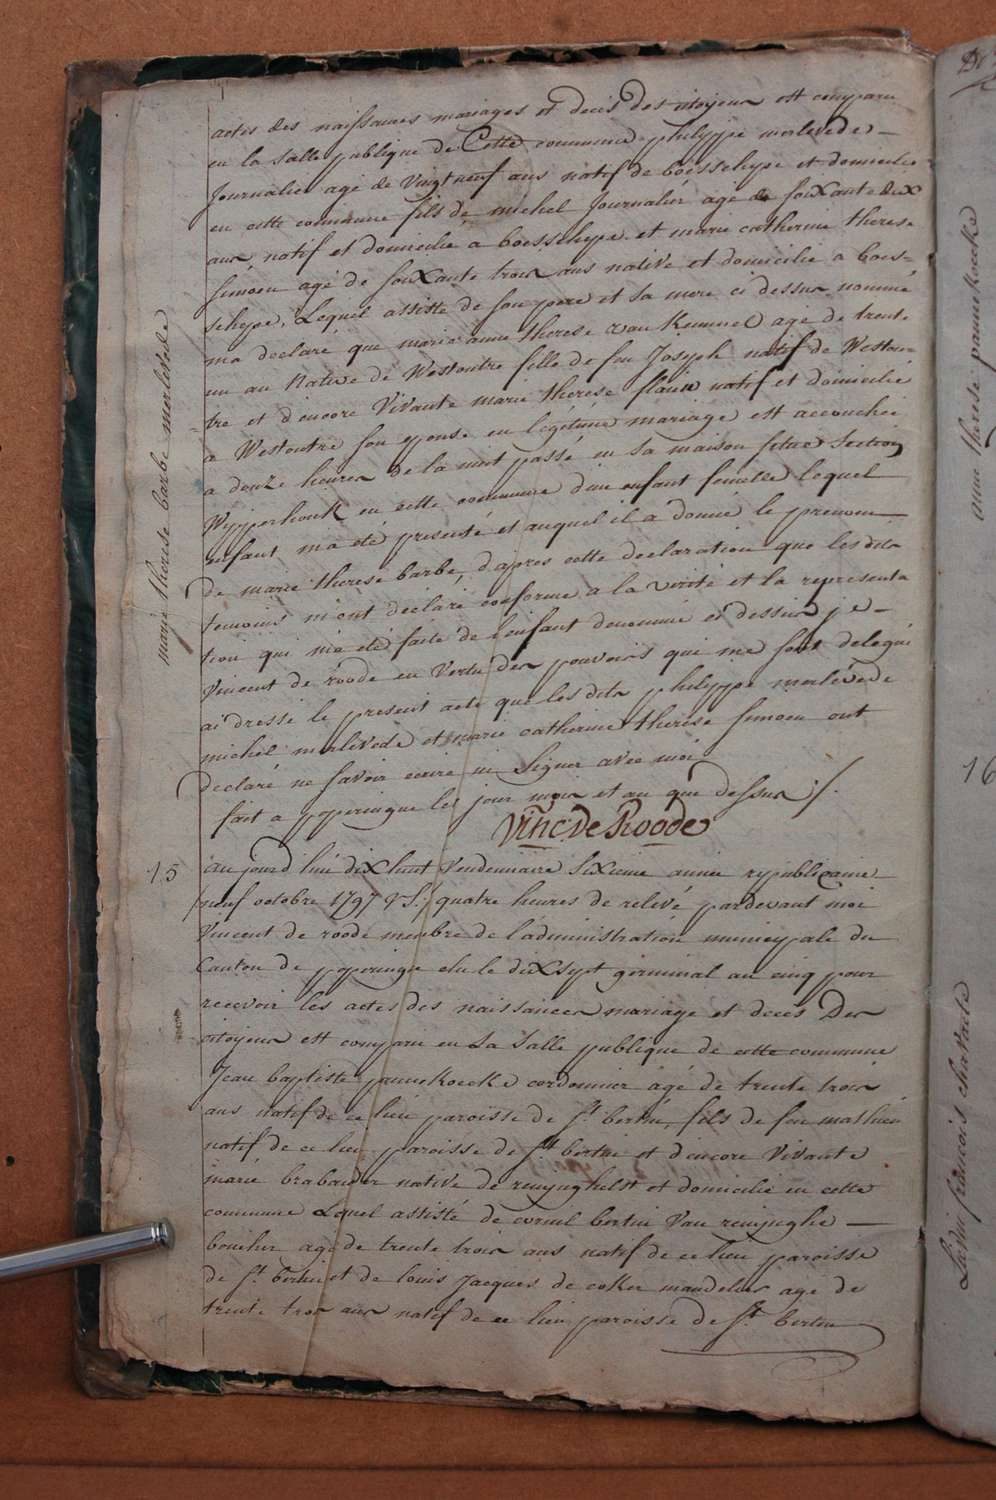 actes des naissances mariages et deces des citoyens est comparu
en la salle publique de Cette commune philippe merlevede
Journalier agé de vingt neuf ans natif de boesschepe et domicilié
en cette commune fils de michel Journalier agé de soixante dix
ans natif et domicilié a boesschepe et marie catherine therese
simoen agé de soixante trois ans native et domicilié a boes=
schepe, Lequel assisté de son pere et sa mere ci dessus nommé
ma declaré que marie anne therese van Kemmel agé de trente
un an Native de Westoutre fille de feu Joseph natif de Westou=
tre et d'encore Vivante marie therese natif et domicilié
a Westoutre son epouse en légitime mariage est accouchée
a douze heures de la nuit passé en sa maison situé Section
Wypperhouk en cette commune d'un enfant femelle lequel
enfant m'a été presenté et auquel il a donné le prenom
De marie therese barbe, d'apres cette declaration que les dits
temoins m'ont déclaré conforme a la verité et la representa
tion qui m'a été faite de l'enfant denommé ci dessus, je
Vincent de roode en vertu des pouvoirs qui me sont delegué
ai dressé le present acte que les dits philippe merlevede
michel merlevede et marie catherine therese simoen ont
declaré ne savoir ecrire ni Signer avec moi
fait a poperingue les jour mois et an que dessus /.
Vinc: De Roode
marie therese barbe merlevede
15
au jourd'hui dix huit Vendemiaire Sixieme année republicaine
/neuf octobre 1797 V:S:/ quatre heures de relevé pardevant moi
Vincent de roode membre de l'administration municipale du
Canton de poperingue elu le dix sept germinal an cinq pour
recevoir les actes des naissances mariage et deces Des
citoyens est comparu en La Salle publique de cette commune
Jean baptiste pannekoecke cordonnier agé de trente trois
ans natif de ce lieu paroisse de St. bertin, fils de feu mathieu
natif de ce lieu paroisse de St. bertin et d'encore Vivante
marie brabander native de renynghelst et domicilié en cette
commune Lequel assisté de corneil bertin Van renynghe
boucher agé de trente trois ans natif de ce lieu paroisse
de St. bertin et de louis Jacques de coker mandelier agé de
trente trois ans natif de ce lieu paroisse de St. bertin
anne therese pannekoecke
16